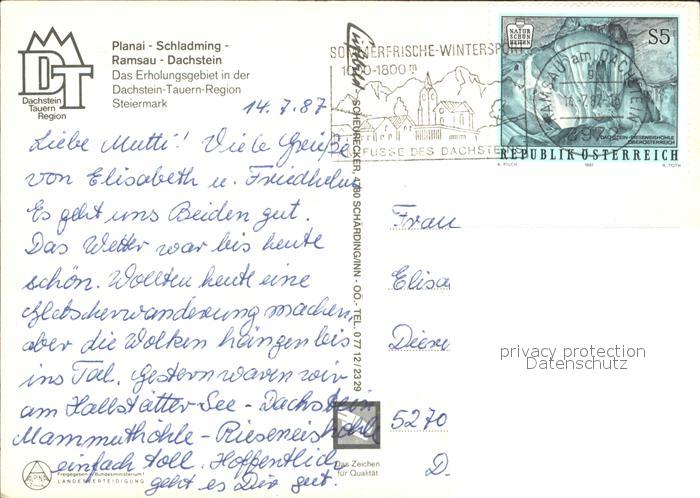 Planai - Schladming -
Ramsau - Dachstein
Das Erholungsgebiet in der
Dachstein-Tauern-Region
Steiermark
DT
Dachstein
Tauern
Region
14.7.87
Liebe Mutti! Viele Grüße
von Elisabeth u. Friedhelm
Es geht uns Beiden gut.
Das Wetter war bis heute
schön. Wollten heute eine
Gletscherwanderung machen,
aber die Wolken hängen bis
ins Tal. Gestern waren wir
am Hallstätter See - Dachstein
Mammuthöhle - Rieseneishöhle
einfach toll. Hoffentlich
geht es Dir gut.
Freigegeben v. Bundesministerium f.
LANDESVERTEIDIGUNG
SCHEURECKER, 4780 SCHÄRDING/INN - OÖ. - TEL. 0 77 12 / 23 29
Das Zeichen
für Qualität
SOMMERFRISCHE-WINTERSPORT
1000-1800m
FUSSE DES DACHSTEINS
RAMSAU am DACHSTEIN
NATUR
SCHÖN
ERLEBEN
S5
DACHSTEIN-RIESENEISHÖHLE
OBERÖSTERREICH
REPUBLIK ÖSTERREICH
A. PILCH 1987 R. TOTH
Frau
Elisa
5270
D.
privacy protection
Datenschutz